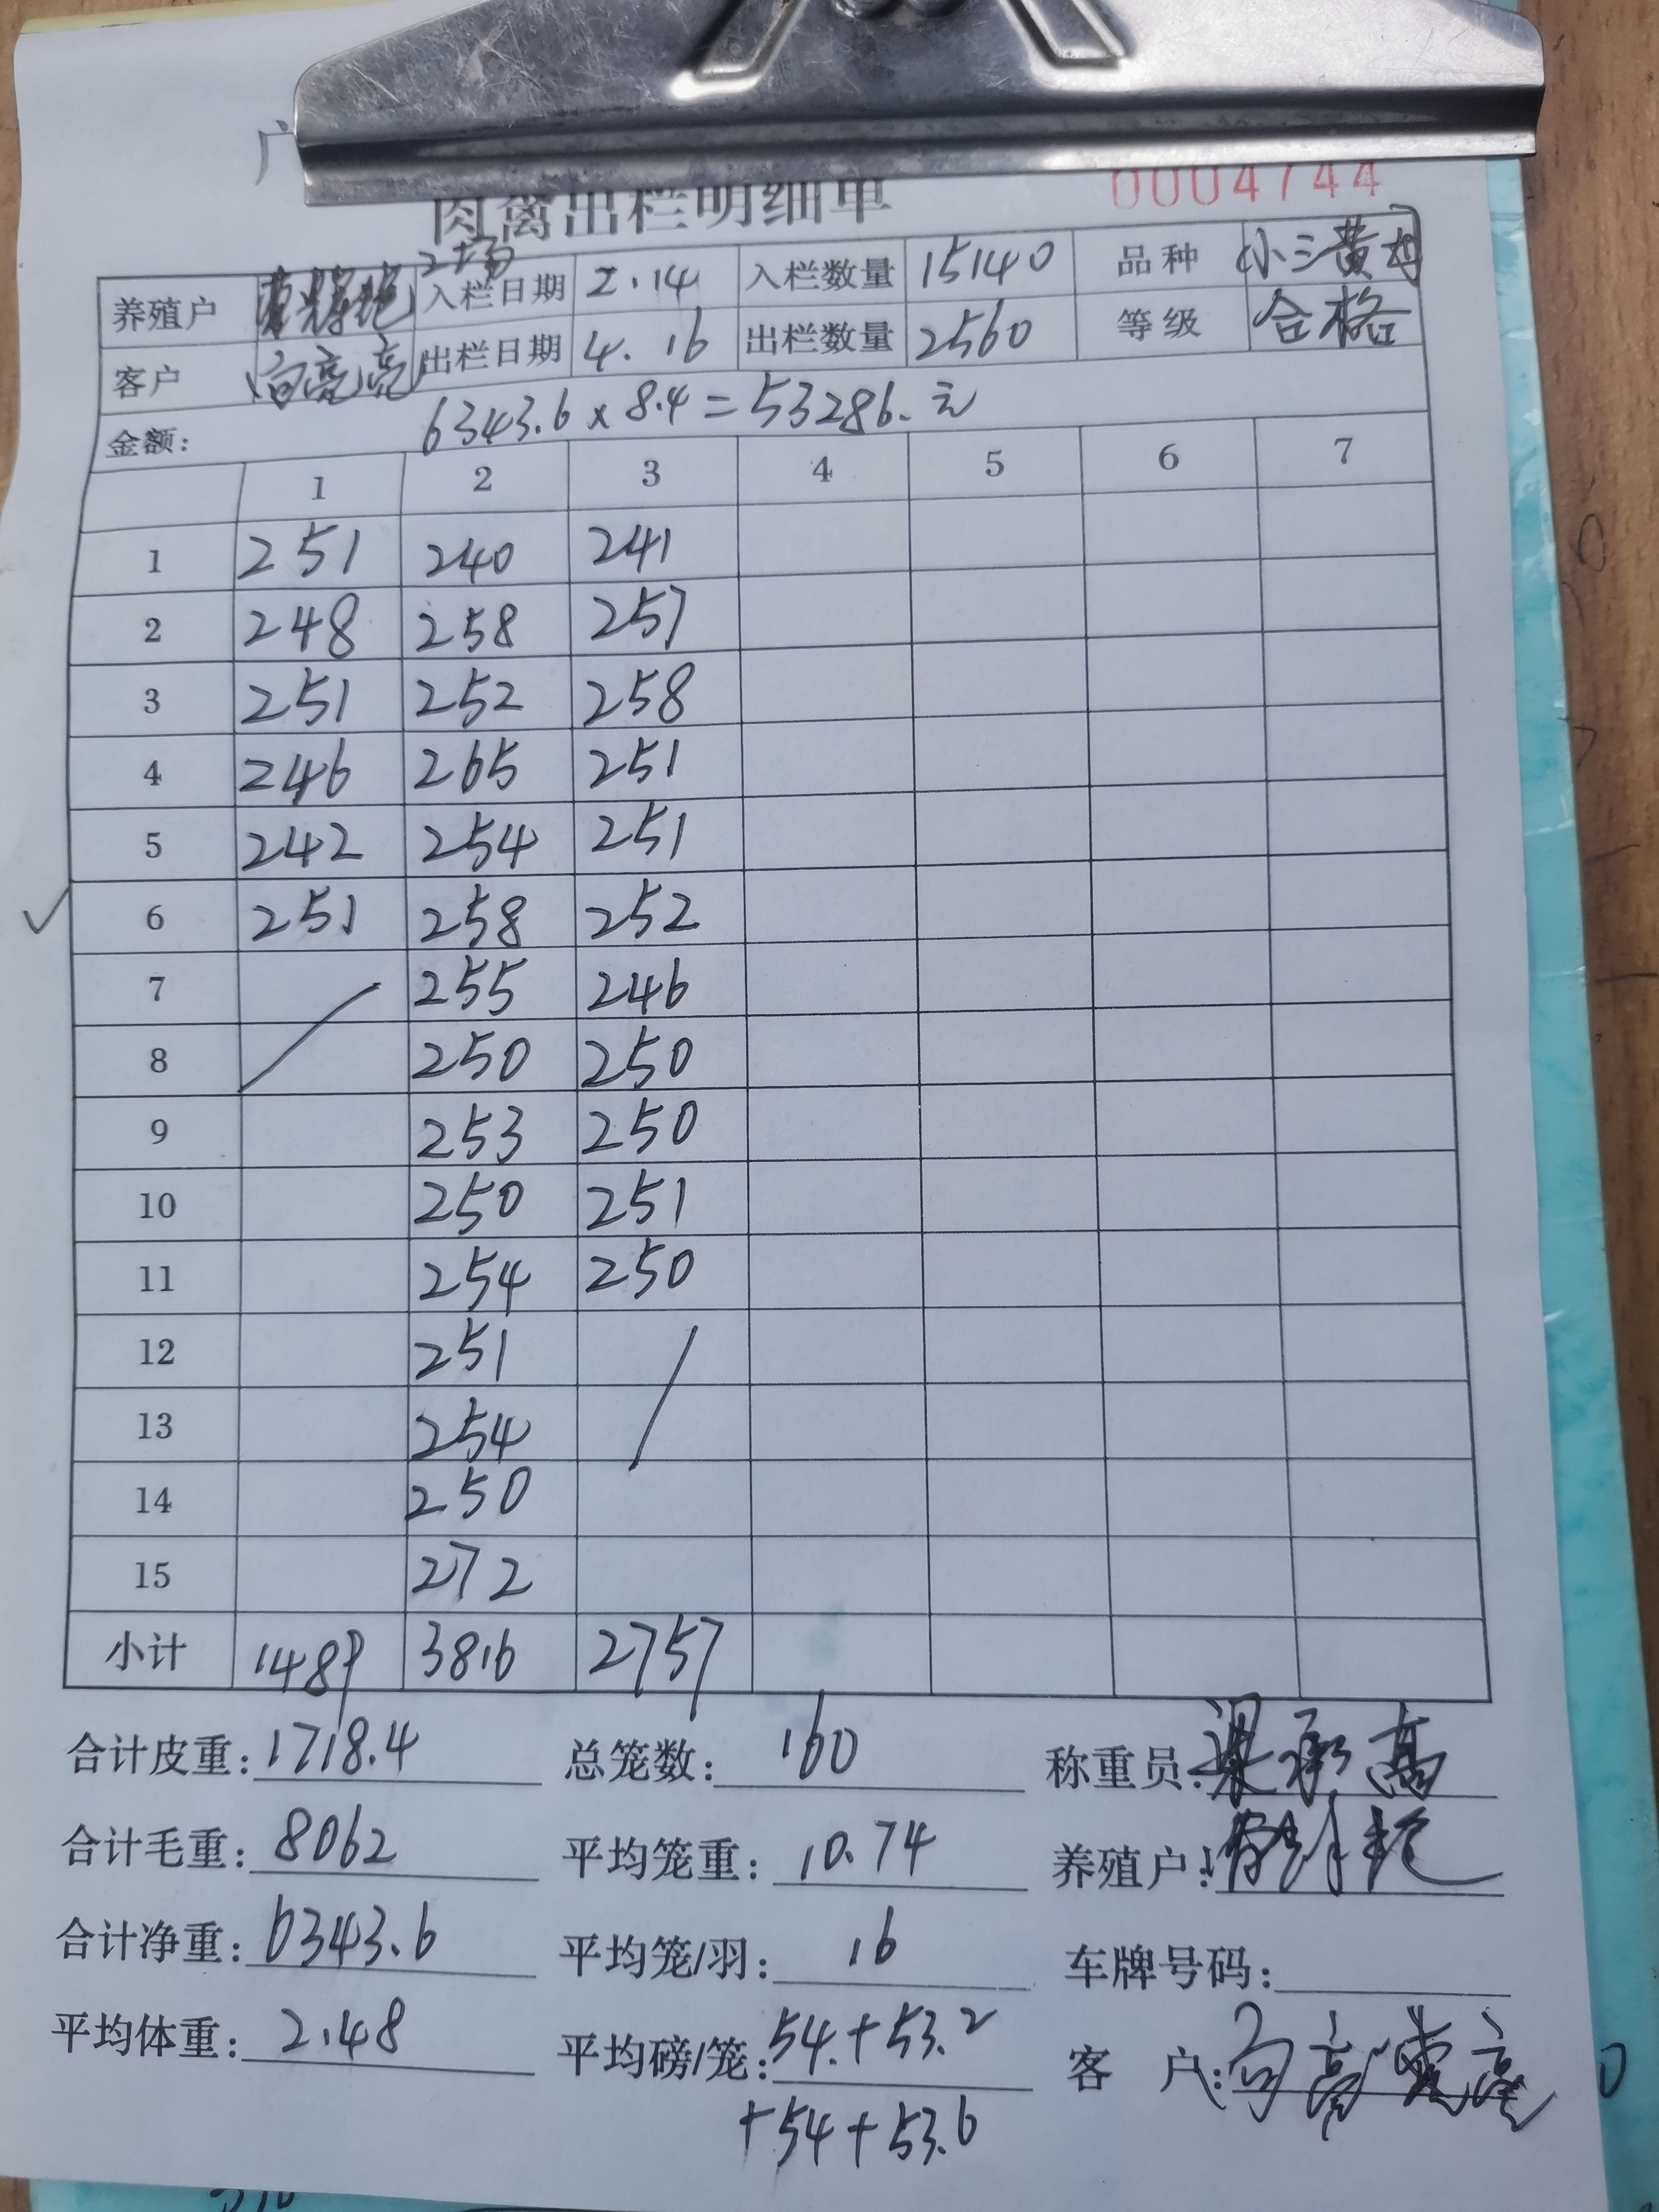 广
肉禽出栏明细单 0004744
2场
养殖户 入栏日期 2.14 入栏数量 15140 品种 小三黄母
客户 向亮亮 出栏日期 4.16 出栏数量 2560 等级 合格
金额: 6343.6×8.4=53286.元
1 2 3 4 5 6 7
1 251 240 241
2 248 258 257
3 251 252 258
4 246 265 251
5 242 254 251
6 251 258 252
7 255 246
8 250 250
9 253 250
10 250 251
11 254 250
12 251
13 254
14 250
15 272
小计 1489 3816 2757
合计皮重: 1718.4 总笼数: 160 称重员: 梁承高
合计毛重: 8062 平均笼重: 10.74 养殖户:
合计净重: 6343.6 平均笼/羽: 16 车牌号码:
平均体重: 2.48 平均磅/笼: 54.+53.2 客 户:
+54+53.6